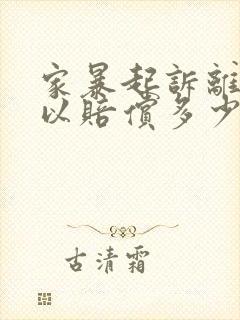 家暴起訴離
以賠償多少
古清霜